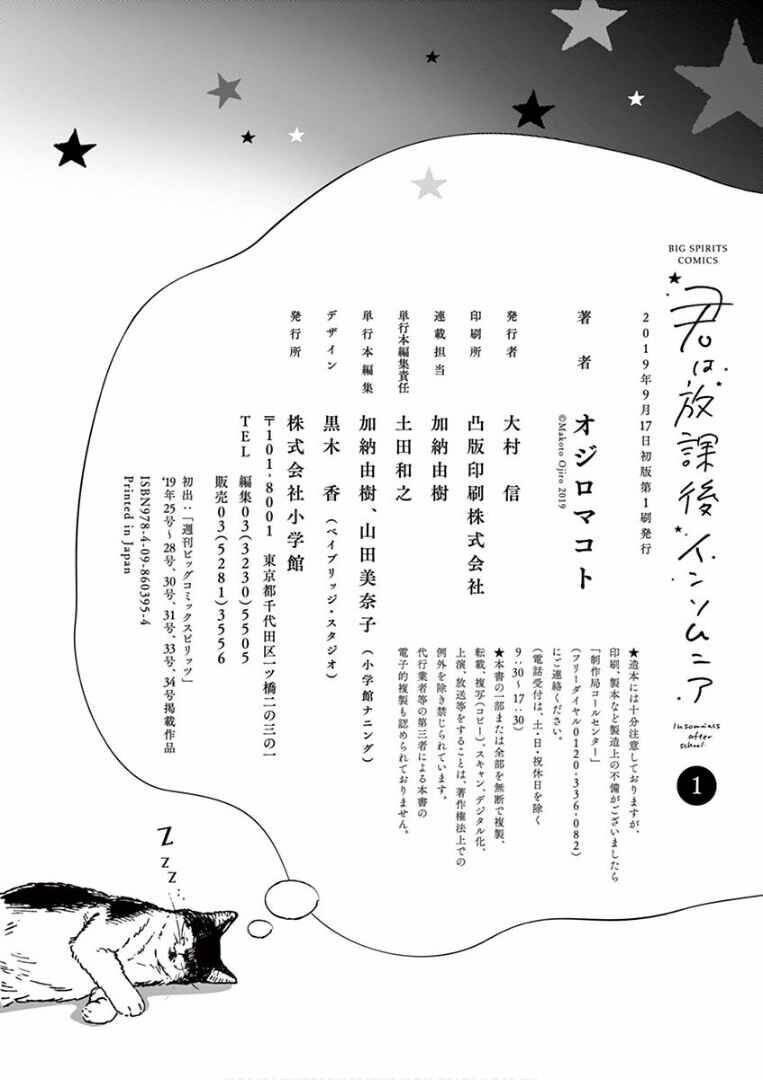 BIG SPIRITS
COMICS
君は放課後インソムニア
Insomniacs
after
school
1
2019年9月17日初版第1刷発行
著者
オジロマコト
©Makoto Ojiro 2019
発行者
大村 信
印刷所
凸版印刷株式会社
連載担当
加納由樹
単行本編集責任
土田和之
単行本編集
加納由樹、山田美奈子(小学館ナニング)
デザイン
黒木 香(ベイブリッジ・スタジオ)
発行所
株式会社小学館
〒101-8001 東京都千代田区一ツ橋二の三の一
TEL 編集03(3230)5505
販売03(5281)3556
初出:「週刊ビッグコミックスピリッツ」
'19年25号〜28号、30号、31号、33号、34号掲載作品
ISBN978-4-09-860395-4
Printed in Japan
★造本には十分注意しておりますが、
印刷、製本など製造上の不備がございましたら
「制作局コールセンター」
(フリーダイヤル0120-336-082)
にご連絡ください。
(電話受付は、土・日・祝休日を除く
9:30〜17:30)
★本書の一部または全部を無断で複製、
転載、複写(コピー)、スキャン、デジタル化、
上演、放送等をすることは、著作権法上での
例外を除き禁じられています。
代行業者等の第三者による本書の
電子的複製も認められておりません。
Z
Z
Z...